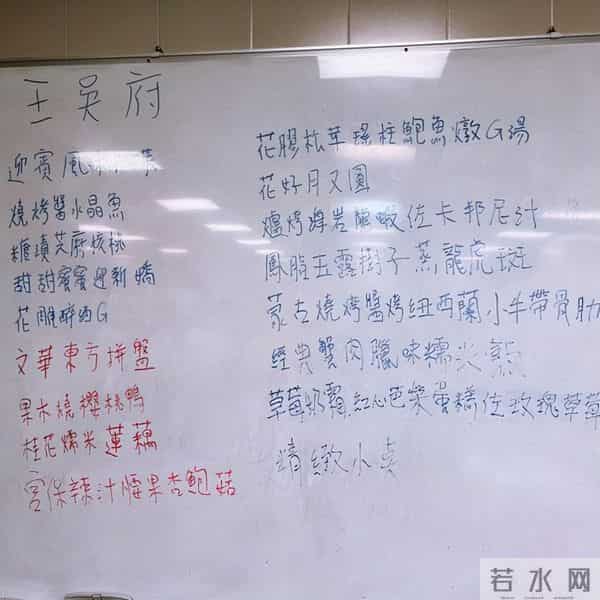 王吳府
迎賓風味小菜
燒烤醬水晶魚
糖漬芝麻核桃
甜甜蜜蜜迎新嬌
花雕醉西G
文華東方拼盤
果木燒櫻桃鴨
桂花糯米蓮藕
宮保辣汁腰果杏鮑菇
花膠松茸瑤柱鮑魚燉G湯
花好月又圓
爐烤岩龍蝦佐卡邦尼汁
鳳脂玉露樹子蒸龍虎斑
蒙古燒烤醬烤紐西蘭小羊帶骨肋
經典蟹肉臘味糯米飯
草莓奶霜紅心芭樂蛋糕佐玫瑰草莓
精緻小點
若水网